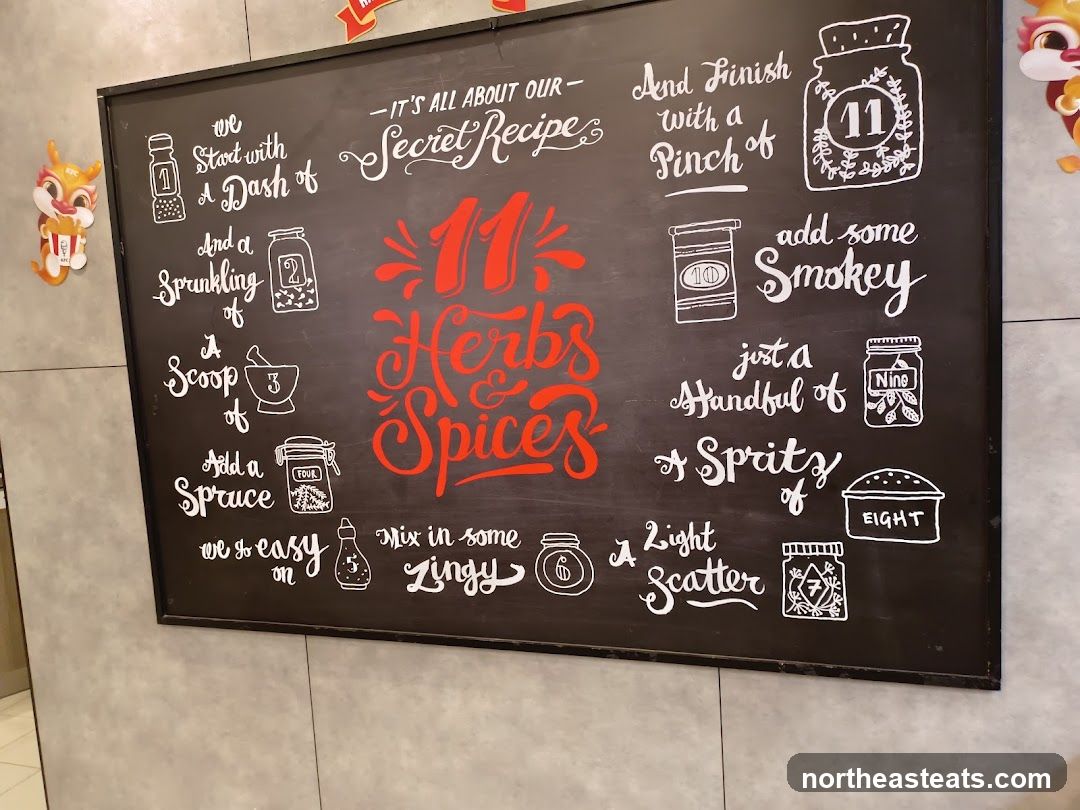 IT'S ALL ABOUT OUR
Secret Recipe
11
Herbs
&
Spices
We
Start with
A Dash of
1
And a
Sprinkling
of
2
A
Scoop
of
3
Add a
Spruce
FOUR
we go easy
on
5
Mix in some
Zingy
6
A Light
Scatter
7
A Spritz
of
EIGHT
just a
Handful of
Nine
add some
Smokey
10
And Finish
with a
Pinch of
11
KFC
northeasteats.com